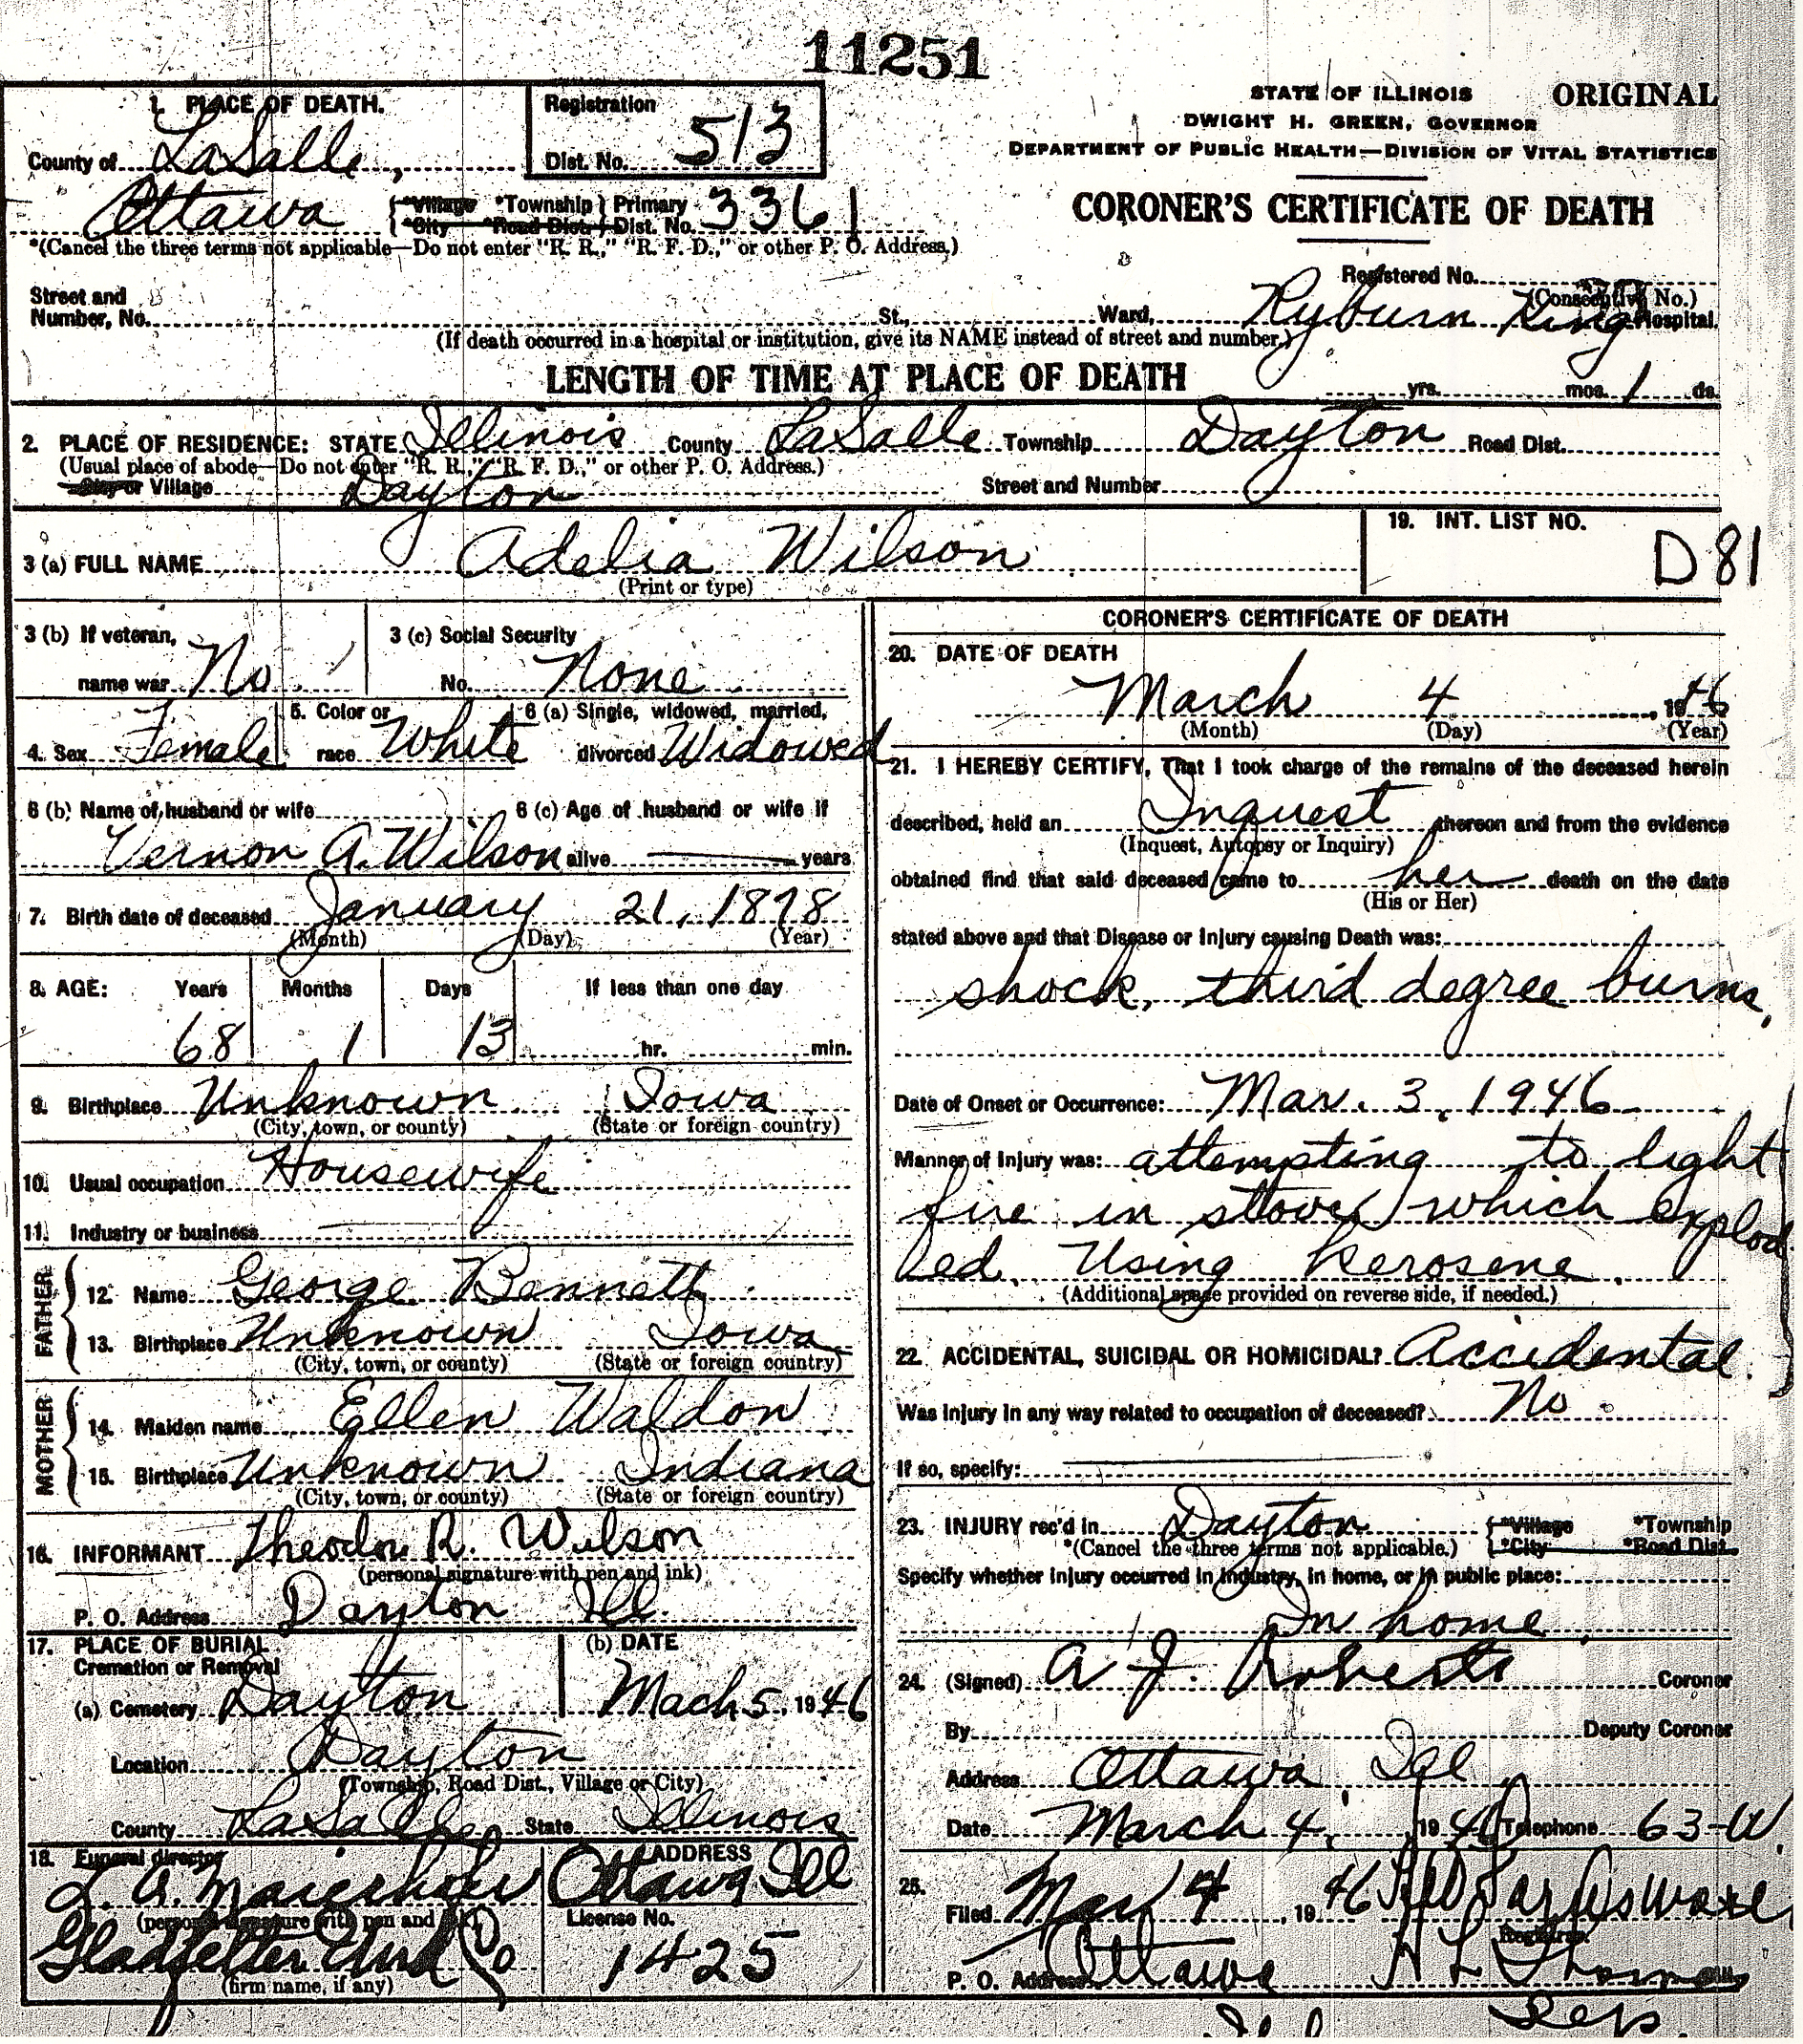 11251
1. PLACE OF DEATH.
Registration
Dist. No. 513
STATE OF ILLINOIS ORIGINAL
DWIGHT H. GREEN, GOVERNOR
DEPARTMENT OF PUBLIC HEALTH—DIVISION OF VITAL STATISTICS
County of LaSalle,
CORONER'S CERTIFICATE OF DEATH
Ottawa {*Village *Township } Primary
*City *Road Dist. } Dist. No. 3361
*(Cancel the three terms not applicable—Do not enter "R. R.," "R. F. D.," or other P. O. Address.)
Registered No.
(Consecutive No.)
Street and
Number, No. St., Ward, Ryburn King Hospital.
(If death occurred in a hospital or institution, give its NAME instead of street and number.)
LENGTH OF TIME AT PLACE OF DEATH yrs. mos. 1 ds.
2. PLACE OF RESIDENCE: STATE Illinois County LaSalle Township Dayton Road Dist.
(Usual place of abode—Do not enter "R. R.," "R. F. D.," or other P. O. Address.)
City or Village Dayton Street and Number
3 (a) FULL NAME Adelia Wilson
(Print or type)
19. INT. LIST NO.
D 81
3 (b) If veteran,
name war No
3 (c) Social Security
No. None
4. Sex Female
5. Color or
race White
6 (a) Single, widowed, married,
divorced Widowed
6 (b) Name of husband or wife
Vernon A. Wilson
6 (c) Age of husband or wife if
alive — years
7. Birth date of deceased January 21, 1878
(Month) (Day) (Year)
8. AGE: Years Months Days If less than one day
68 1 13 hr. min.
9. Birthplace Unknown Iowa
(City, town, or county) (State or foreign country)
10. Usual occupation Housewife
11. Industry or business
FATHER
12. Name George Bennett
13. Birthplace Unknown Iowa
(City, town, or county) (State or foreign country)
MOTHER
14. Maiden name Ellen Waldon
15. Birthplace Unknown Indiana
(City, town, or county) (State or foreign country)
16. INFORMANT Theodore R. Wilson
(personal signature with pen and ink)
P. O. Address Dayton Ill.
17. PLACE OF BURIAL
Cremation or Removal
(a) Cemetery Dayton
(b) DATE
Mach 5, 1946
Location Dayton
(Township, Road Dist., Village or City)
County LaSalle State Illinois
18. Funeral director
L. A.
(personal signature with pen and ink)
Gladfelter
(firm name, if any)
ADDRESS
Ottawa Ill
License No.
1425
CORONER'S CERTIFICATE OF DEATH
20. DATE OF DEATH
March 4, 1946
(Month) (Day) (Year)
21. I HEREBY CERTIFY, That I took charge of the remains of the deceased herein
described, held an Inquest thereon and from the evidence
(Inquest, Autopsy or Inquiry)
obtained find that said deceased came to her death on the date
(His or Her)
stated above and that Disease or Injury causing Death was:
shock, third degree burns,
Date of Onset or Occurrence: Mar. 3, 1946
Manner of Injury was: attempting to light
fire in stove which explod
ed. Using kerosene.
(Additional space provided on reverse side, if needed.)
22. ACCIDENTAL, SUICIDAL OR HOMICIDAL? Accidental.
Was injury in any way related to occupation of deceased? No.
If so, specify:
23. INJURY rec'd in Dayton {*Village *Township
*(Cancel the three terms not applicable.) {*City *Road Dist.
Specify whether injury occurred in industry, in home, or in public place:
In home
24. (Signed) A J. Roberts Coroner
By Deputy Coroner
Address Ottawa, Ill
Date March 4, 1946 Telephone 63-W.
25.
Filed Mar 4, 1946
Registrar.
P. O. Address Ottawa
Ill